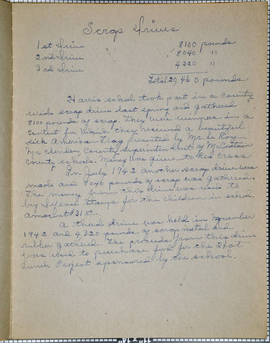 Scrap Drives
1st Drive 8100 pounds
2nd Drive 8040 "
3rd Drive 4320 "
Total 20,460 pounds
Harris school took part in a County
wide scrap drive last spring and gathered
8100 pounds of scrap. They were winners in a
contest for which they received a beautiful
American Flag presented by Mr. Le Roy
County Superintendent of
County schools. Money was given to Red Cross
In July 1942 another scrap drive was
made and 8040 pounds of scrap was gathered.
The money from this drive was used to
buy Stamps for the children in school.
Amount $31
A third drive was held in November
1942 and 4,320 pounds of scrap metal and
rubber gathered. The proceeds from this drive
was used to purchase food for the Hot
Lunch Project sponsored by the school.